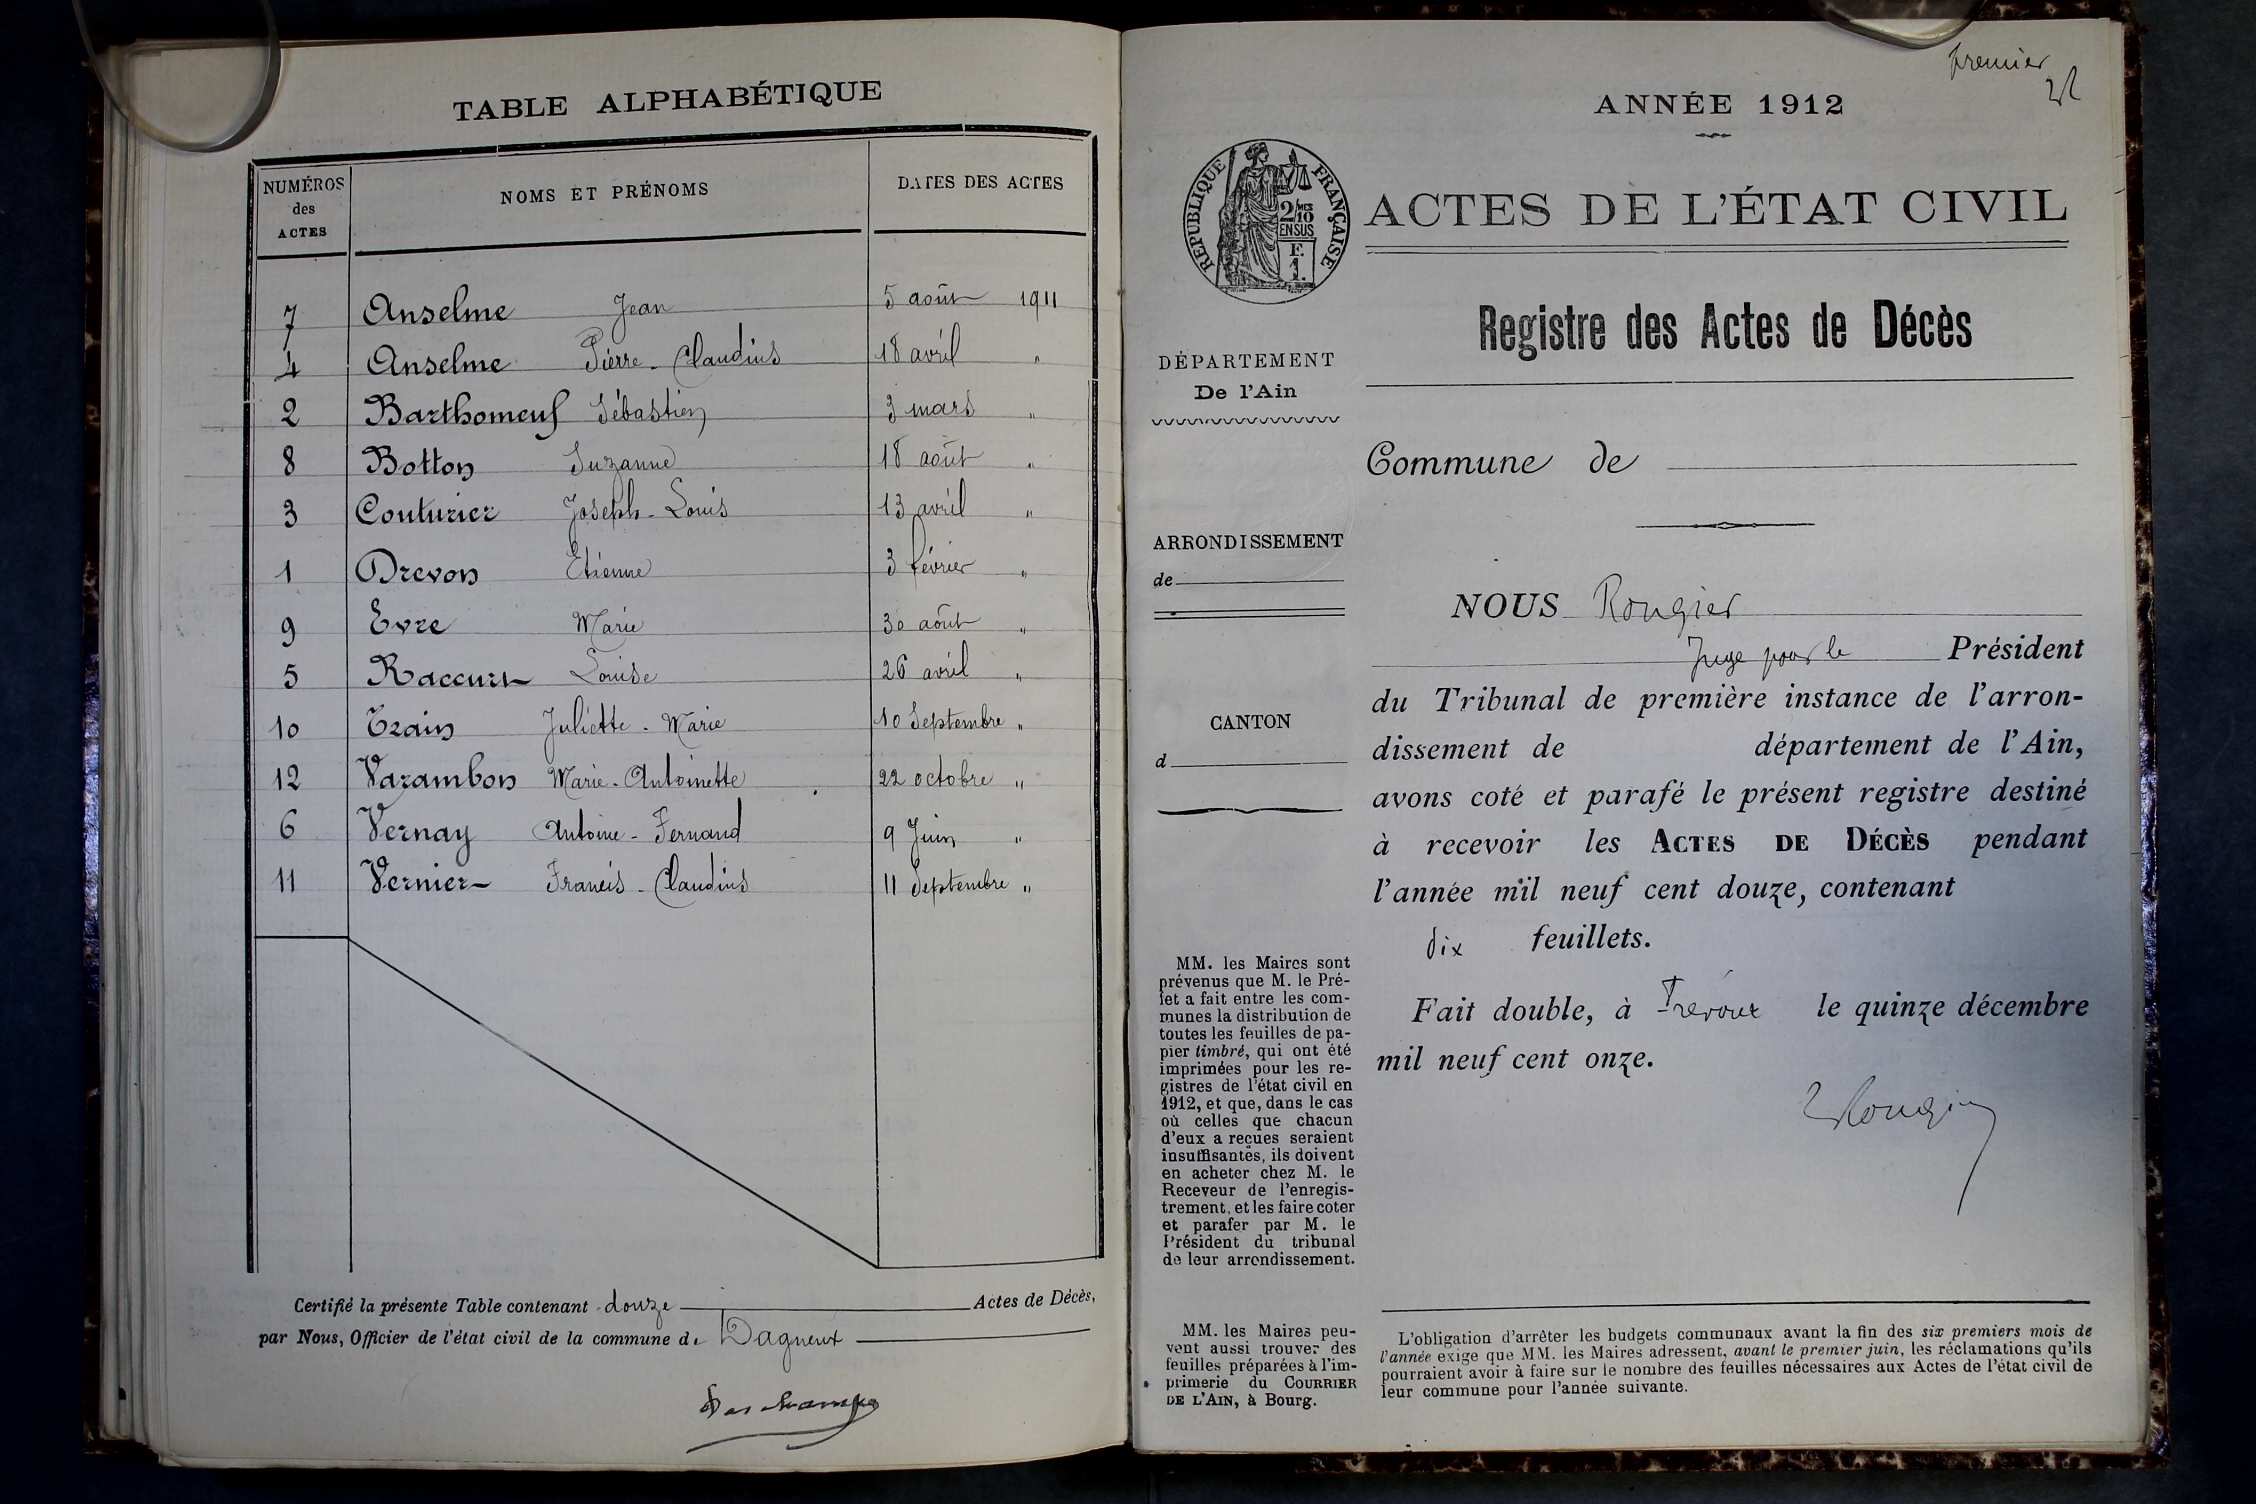 TABLE ALPHABÉTIQUE
NUMÉROS des ACTES NOMS ET PRÉNOMS DATES DES ACTES
7 Anselme Jean 5 août 1911
4 Anselme Pierre-Claudius 18 avril "
2 Barthomeuf Sébastien 3 mars "
8 Botton Suzanne 18 août "
3 Couturier Joseph-Louis 13 avril "
1 Drevon Etienne 3 février "
9 Evre Marie 30 août "
5 Raccurt Louise 26 avril "
10 Train Juliette-Marie 10 Septembre "
12 Varambon Marie-Antoinette 22 octobre "
6 Vernay Antoine-Fernand 9 Juin "
11 Vernier Francis-Claudius 11 Septembre "
Certifié la présente Table contenant douze Actes de Décès,
par Nous, Officier de l'état civil de la commune de Dagneux
Deschamps
premier
ANNÉE 1912
RÉPUBLIQUE FRANÇAISE
2/10 MES
EN SUS
F.
1.
ACTES DE L'ÉTAT CIVIL
Registre des Actes de Décès
DÉPARTEMENT
De l'Ain
Commune de
ARRONDISSEMENT
de
CANTON
d
NOUS Rougier
Juge pour le Président
du Tribunal de première instance de l'arron-
dissement de département de l'Ain,
avons coté et parafé le présent registre destiné
à recevoir les ACTES DE DÉCÈS pendant
l'année mil neuf cent douze, contenant
dix feuillets.
Fait double, à Trévoux le quinze décembre
mil neuf cent onze.
Rougier
MM. les Maires sont
prévenus que M. le Pré-
fet a fait entre les com-
munes la distribution de
toutes les feuilles de pa-
pier timbré, qui ont été
imprimées pour les re-
gistres de l'état civil en
1912, et que, dans le cas
où celles que chacun
d'eux a reçues seraient
insuffisantes, ils doivent
en acheter chez M. le
Receveur de l'enregis-
trement, et les faire coter
et parafer par M. le
Président du tribunal
de leur arrondissement.
MM. les Maires peu-
vent aussi trouver des
feuilles préparées à l'im-
primerie du COURRIER
DE L'AIN, à Bourg.
L'obligation d'arrêter les budgets communaux avant la fin des six premiers mois de
l'année exige que MM. les Maires adressent, avant le premier juin, les réclamations qu'ils
pourraient avoir à faire sur le nombre des feuilles nécessaires aux Actes de l'état civil de
leur commune pour l'année suivante.